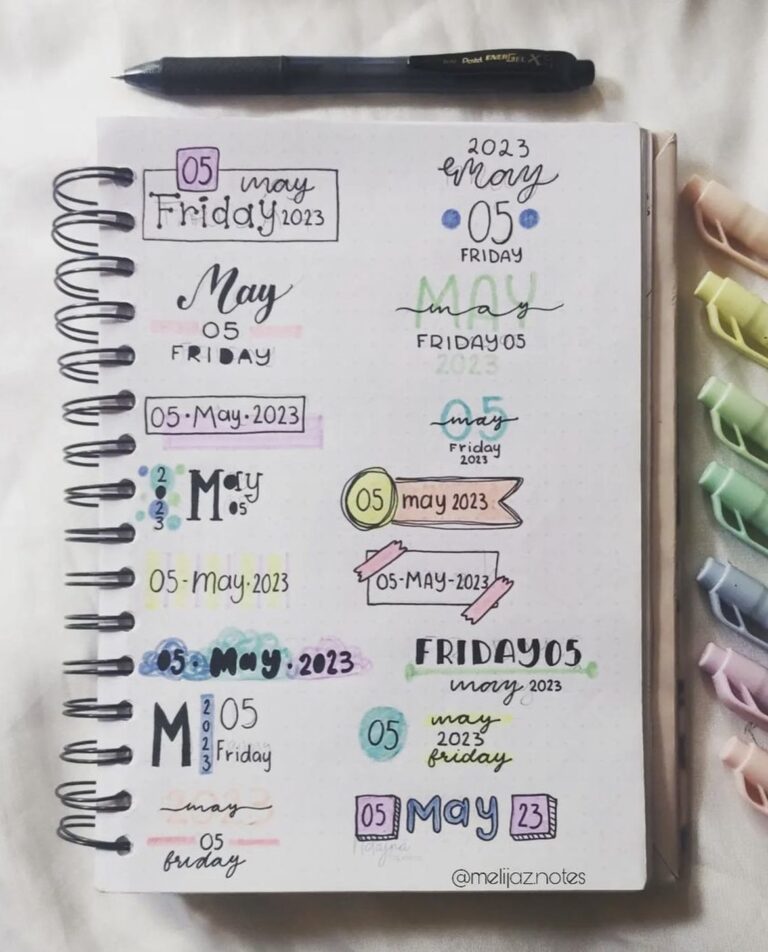 Pentel ENERGEL X
05
may
Friday 2023
2023
May
05
FRIDAY
May
05
FRIDAY
MAY
may
FRIDAY 05
2023
05·May·2023
05
may
Friday
2023
2023
May
05
05 may 2023
05-May·2023
05-MAY-2023
05·May·2023
FRIDAY 05
may 2023
M 2023 05
Friday
05
may
2023
friday
2023
may
05
friday
05 MAY 23
@melijaz.notes